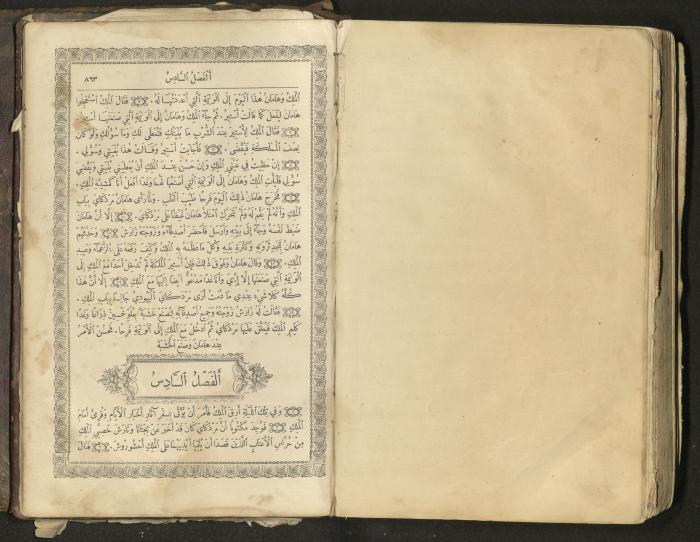 ٨٦٣ أَلْفَصْلُ ٱلسَّادِسُ
ٱلْمَلِكُ وَهَامَانُ هٰذَا ٱلْيَوْمَ إِلَى ٱلْوَلِيمَةِ ٱلَّتِي أَعْدَدْتُهَا لَهُ. فَقَالَ ٱلْمَلِكُ ٱسْتَعْجِلُوا
هَامَانَ لِيَفْعَلَ كَمَا قَالَتْ أَسْتِيرُ. ثُمَّ جَاءَ ٱلْمَلِكُ وَهَامَانُ إِلَى ٱلْوَلِيمَةِ ٱلَّتِي صَنَعَتْهَا أَسْتِيرُ.
فَقَالَ ٱلْمَلِكُ لِأَسْتِيرَ عِنْدَ ٱلشُّرْبِ مَا بُغْيَتُكِ فَتُعْطَى لَكِ وَمَا سُؤْلُكِ وَلَوْ كَانَ
نِصْفَ ٱلْمَمْلَكَةِ فَيُقْضَى. فَأَجَابَتْ أَسْتِيرُ وَقَالَتْ هٰذَا بُغْيَتِي وَسُؤْلِي.
إِنْ حَظِيتُ فِي عَيْنَيِ ٱلْمَلِكِ وَإِنْ حَسُنَ عِنْدَ ٱلْمَلِكِ أَنْ يُعْطِيَنِي بُغْيَتِي وَيَقْضِيَ
سُؤْلِي فَلْيَأْتِ ٱلْمَلِكُ وَهَامَانُ إِلَى ٱلْوَلِيمَةِ ٱلَّتِي أَصْنَعُهَا لَهُمَا وَغَدًا أَفْعَلُ أَنَا كَمَشِيئَةِ ٱلْمَلِكِ.
فَخَرَجَ هَامَانُ ذٰلِكَ ٱلْيَوْمَ فَرِحًا طَيِّبَ ٱلْقَلْبِ. وَلَمَّا رَأَى هَامَانُ مَرْدَكَايَ بِبَابِ
ٱلْمَلِكِ وَأَنَّهُ لَمْ يَقُمْ لَهُ وَلَمْ يَتَحَرَّكِ ٱمْتَلَأَ هَامَانُ غَيْظًا عَلَى مَرْدَكَايَ. إِلَّا أَنَّ هَامَانَ
ضَبَطَ نَفْسَهُ وَجَاءَ إِلَى بَيْتِهِ وَأَرْسَلَ فَأَحْضَرَ أَصْدِقَاءَهُ وَزَوْجَتَهُ زَارَشَ وَحَدَّثَهُمْ
هَامَانُ بِمَجْدِ ثَرْوَتِهِ وَكَثْرَةِ بَنِيهِ وَكُلِّ مَا عَظَّمَهُ بِهِ ٱلْمَلِكُ وَكَيْفَ رَفَعَهُ عَلَى ٱلزُّعَمَاءِ وَعَبِيدِ
ٱلْمَلِكِ. وَقَالَ هَامَانُ وَفَوْقَ ذٰلِكَ فَإِنَّ أَسْتِيرَ ٱلْمَلِكَةَ لَمْ تُدْخِلْ أَحَدًا مَعَ ٱلْمَلِكِ إِلَى
ٱلْوَلِيمَةِ ٱلَّتِي صَنَعَتْهَا إِلَّا إِيَّايَ وَأَنَا غَدًا مَدْعُوٌّ أَيْضًا إِلَيْهَا مَعَ ٱلْمَلِكِ إِلَّا أَنَّ هٰذَا
كُلَّهُ كَلَا شَيْءَ عِنْدِي مَا دُمْتُ أَرَى مَرْدَكَايَ ٱلْيَهُودِيَّ جَالِسًا بِبَابِ ٱلْمَلِكِ.
فَقَالَتْ لَهُ زَارَشُ زَوْجَتُهُ وَجَمِيعُ أَصْدِقَائِهِ لِتُصْنَعْ خَشَبَةٌ بِعُلُوِّ خَمْسِينَ ذِرَاعًا وَغَدًا
كَلِّمِ ٱلْمَلِكَ فَيُعَلَّقَ عَلَيْهَا مَرْدَكَايُ ثُمَّ ٱدْخُلْ مَعَ ٱلْمَلِكِ إِلَى ٱلْوَلِيمَةِ فَرِحًا. فَحَسُنَ ٱلْأَمْرُ
عِنْدَ هَامَانَ وَصَنَعَ ٱلْخَشَبَةَ
أَلْفَصْلُ ٱلسَّادِسُ
وَفِي تِلْكَ ٱللَّيْلَةِ أَرِقَ ٱلْمَلِكُ فَأَمَرَ أَنْ يُؤْتَى بِسِفْرِ آثَارِ أَخْبَارِ ٱلْأَيَّامِ وَقُرِئَ أَمَامَ
ٱلْمَلِكِ فَوُجِدَ مَكْتُوبًا أَنَّ مَرْدَكَايَ كَانَ قَدْ أَخْبَرَ عَنْ بِجْتَانَا وَتَارَشَ خَصِيَّيِ ٱلْمَلِكِ
مِنْ حُرَّاسِ ٱلْأَعْتَابِ ٱللَّذَيْنِ قَصَدَا أَنْ يُلْقِيَا أَيْدِيَهُمَا عَلَى ٱلْمَلِكِ أَحْشُورُوشَ. فَقَالَ